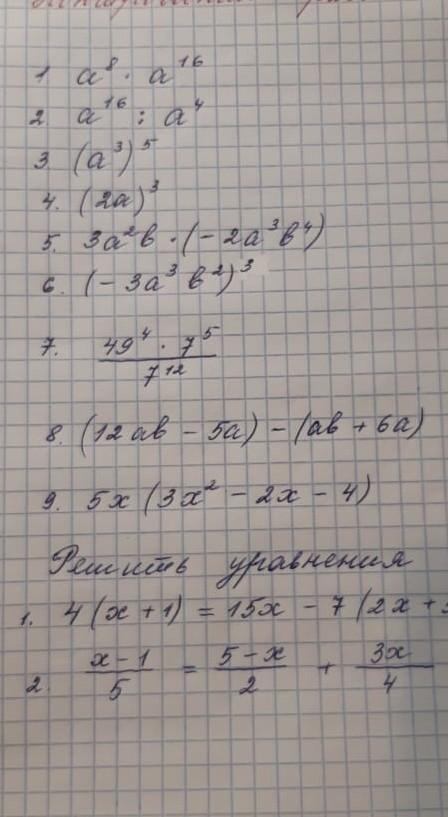 1 a⁸ · a¹⁶
2. a¹⁶ : a⁴
3. (a³)⁵
4. (2a)³
5. 3a²b · (-2a³b⁴)
6. (-3a³b²)³
7. (49⁴ · 7⁵)/7¹²
8. (12ab - 5a) - (ab + 6a)
9. 5x (3x² - 2x - 4)
Решить уравнения
1. 4(x+1) = 15x - 7(2x+
2. (x-1)/5 = (5-x)/2 + 3x/4